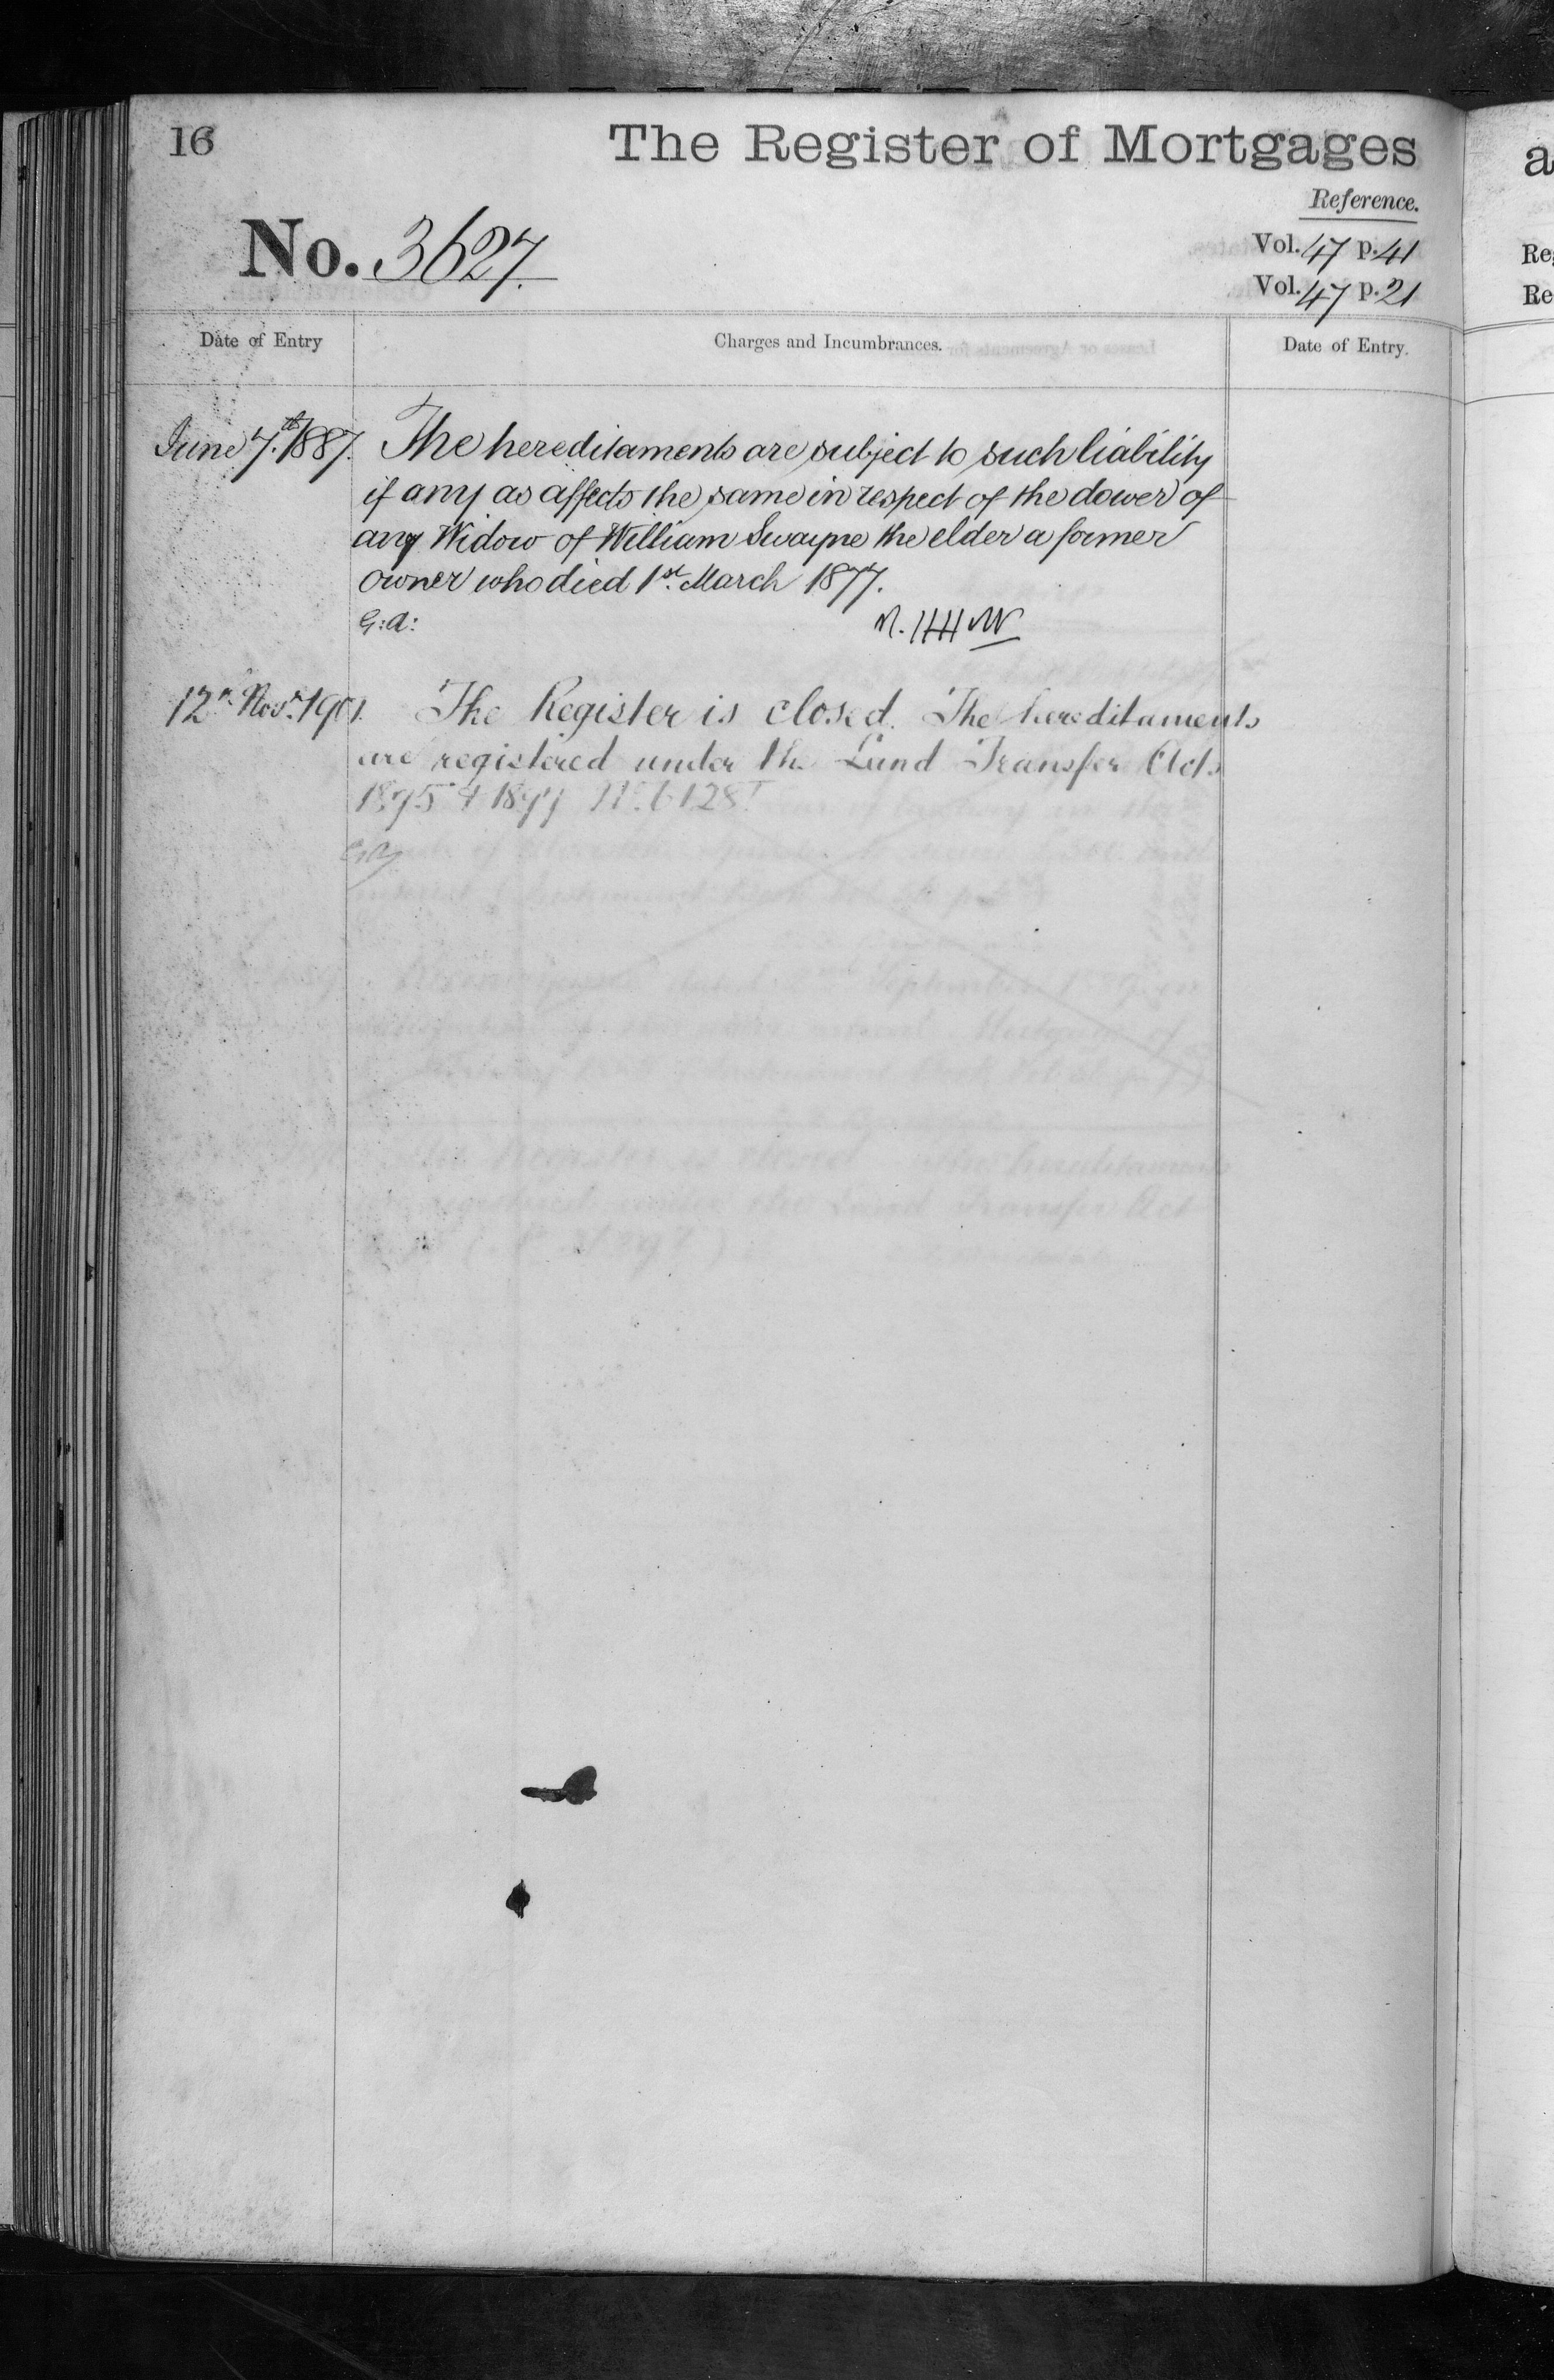 16
The Register of Mortgages
Reference.
No. 3627.
Vol. 47 p. 41
Vol. 47 p. 21
Date of Entry
Charges and Incumbrances.
Date of Entry.
June 7.th 1887. The hereditaments are subject to such liability
if any as affects the same in respect of the dower of
any Widow of William Swayne the elder a former
owner who died 1st. March 1877.
G: A:
12th Novr. 1901. The Register is closed. The hereditaments
are registered under the Land Transfer Acts
1875 & 1897 No.
a
Re
Re